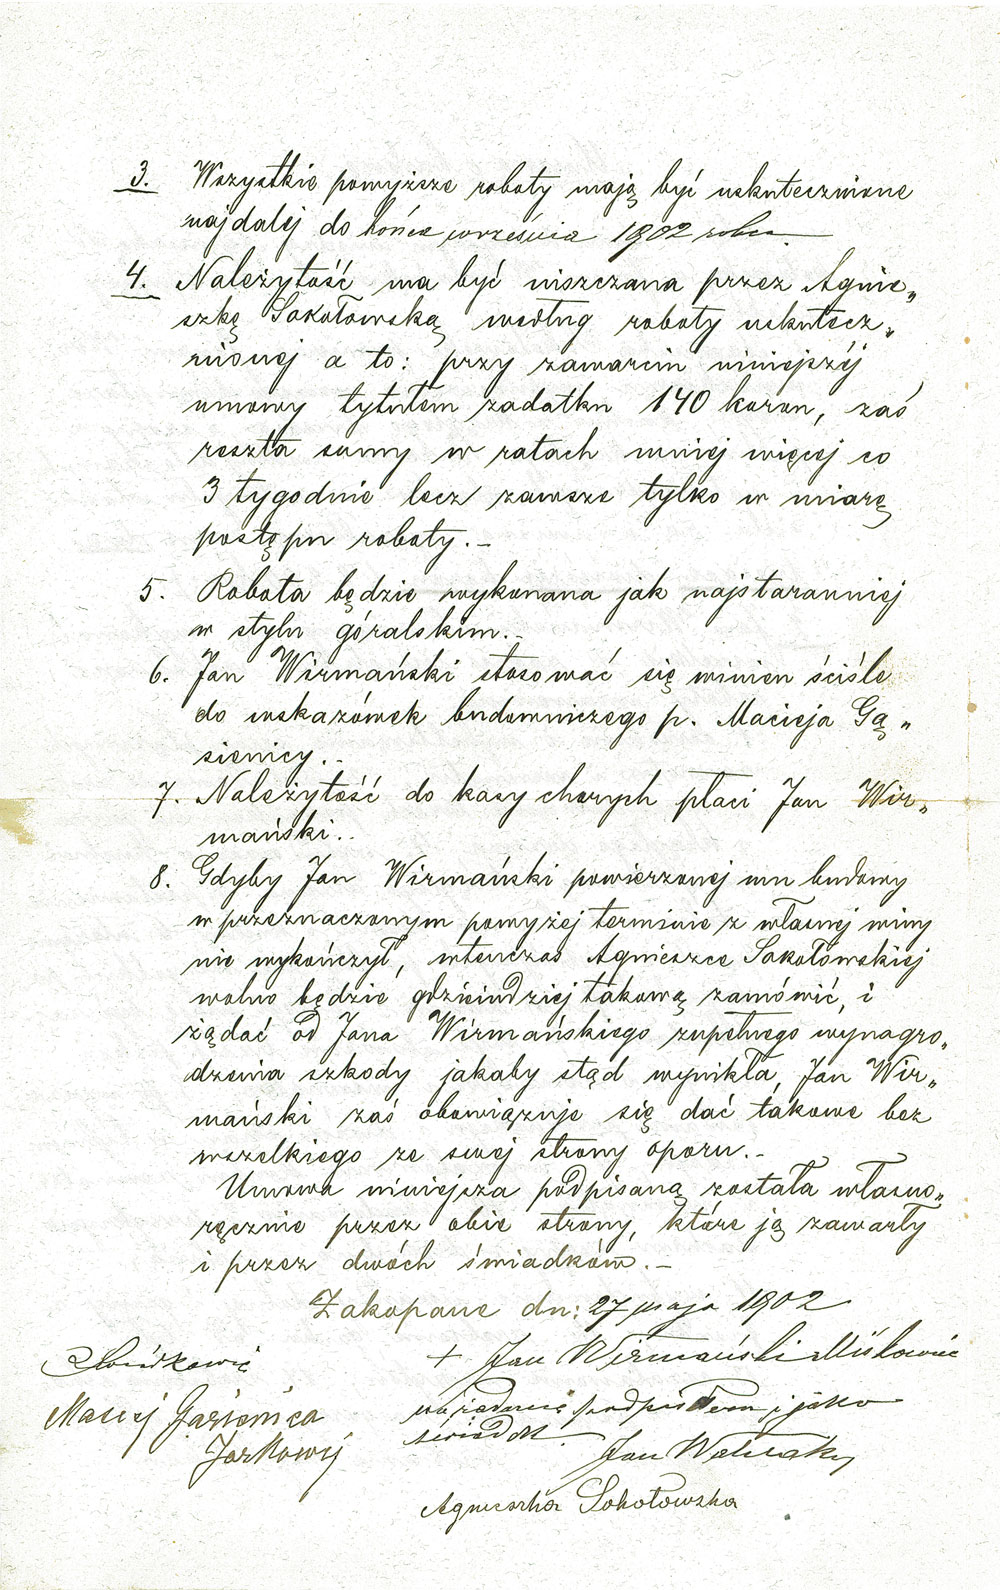 3. Wszystkie powyższe roboty mają być uskutecznione
najdalej do końca września 1902 roku.
4. Należytość ma być uiszczana przez Agnie„
szkę Sokołowską według roboty uskutecz„
nionej a to: przy zawarciu niniejszéj
umowy tytułem zadatku 140 koron, zaś
reszta sumy w ratach mniej więcej co
3 tygodnie lecz zawsze tylko w miarę
postępu roboty.–
5. Robota będzie wykonana jak najstaranniej
w stylu góralskim.–
6. Jan Wirmański stosować się winien ściśle
do wskazówek budowniczego p. Macieja Gą„
sienicy.–
7. Należytość do kasy chorych płaci Jan Wir„
mański.–
8. Gdyby Jan Wirmański powierzonej mu budowy
w przeznaczonym powyżej terminie z własnej winy
nie wykończył, wtenczas Agnieszce Sokołowskiej
wolno będzie gdzieindziej takową zamówić, i
żądać od Jana Wirmańskiego zupełnego wynagro„
dzenia szkody jakaby stąd wynikła, Jan Wir„
mański zaś obowiązuje się dać takowe bez
wszelkiego ze swej strony oporu.–
Umowa niniejsza podpisaną została własno„
ręcznie przez obie strony, które ją zawarły
i przez dwóch świadków.–
Zakopane dn: 27 maja 1902
+ Jan Wirmański
Maciej Gąsienica
Jarkowy
na żądanie podpisałem i jako
świadek
Jan
Agnieszka Sokołowska